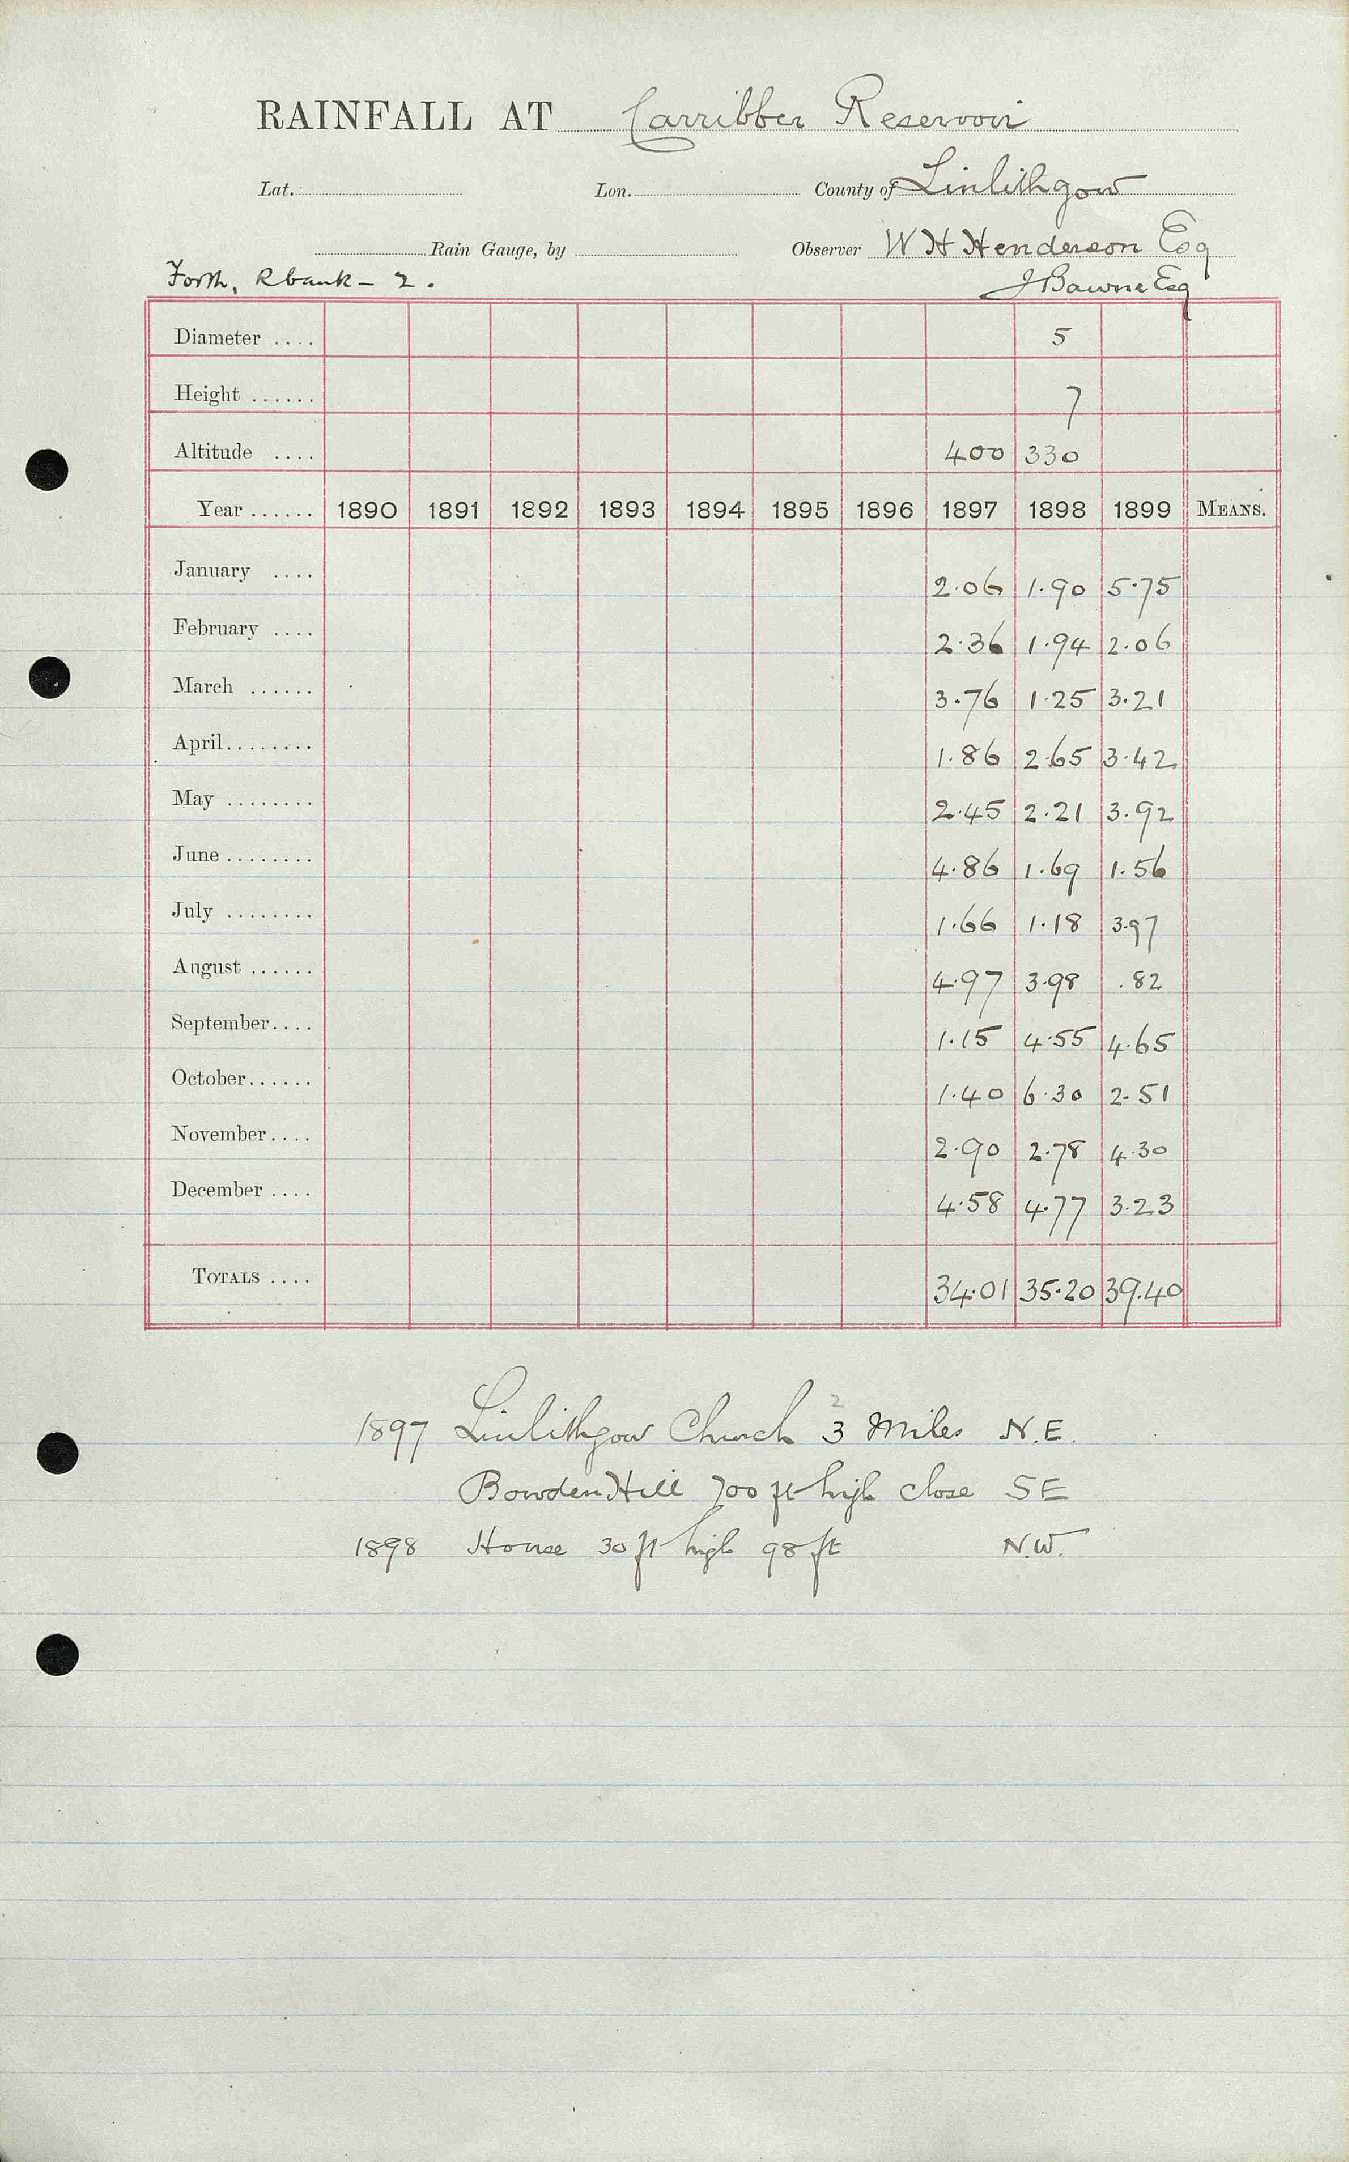 RAINFALL AT Carribber Reservoir
Lat. Lon. County of Linlithgow
Rain Gauge, by Observer W H Henderson Esq
Forth, R bank - 2. J Bawne Esq
Diameter .... 5
Height ...... 7
Altitude .... 400 330
Year ...... 1890 1891 1892 1893 1894 1895 1896 1897 1898 1899 MEANS.
January .... 2.06 1.90 5.75
February .... 2.36 1.94 2.06
March ...... 3.76 1.25 3.21
April........ 1.86 2.65 3.42
May ........ 2.45 2.21 3.92
June ........ 4.86 1.69 1.56
July ........ 1.66 1.18 3.97
August ...... 4.97 3.98 .82
September.... 1.15 4.55 4.65
October...... 1.40 6.30 2.51
November.... 2.90 2.78 4.30
December .... 4.58 4.77 3.23
TOTALS .... 34.01 35.20 39.40
2
1897 Linlithgow Church 3 Miles N.E.
Bowden Hill 700 ft high close SE
1898 House 30 ft high 98 ft N.W.